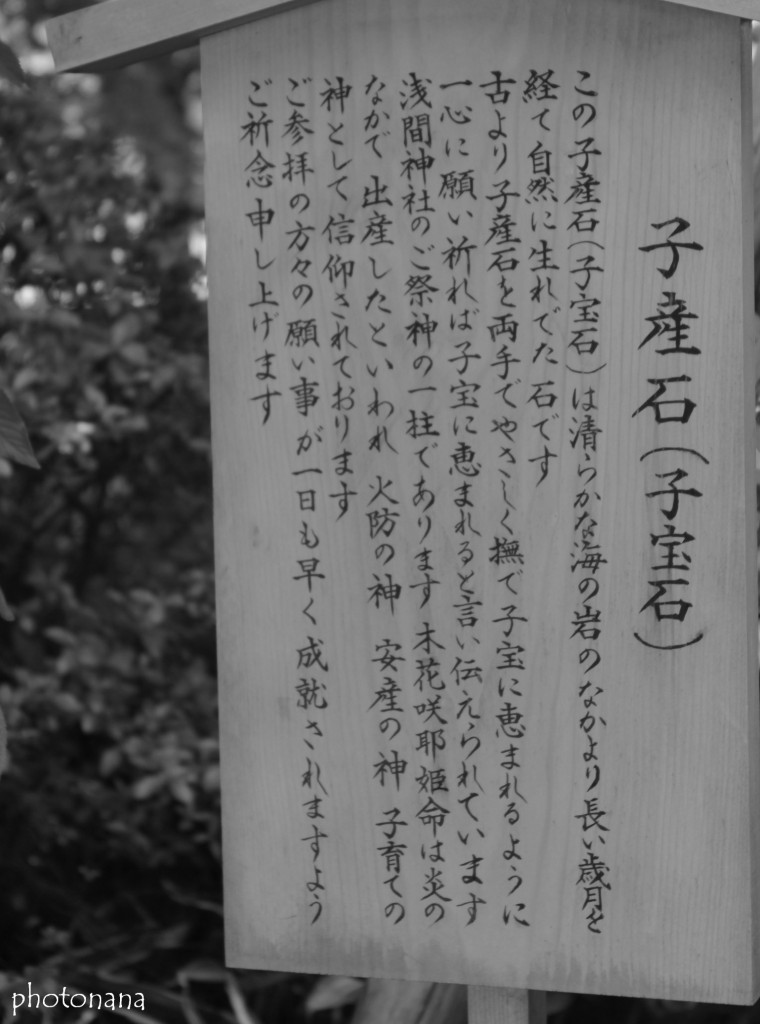 子産石（子宝石）
この子産石（子宝石）は清らかな海の岩のなかより長い歳月を
経て自然に生れでた石です
古より子産石を両手でやさしく撫で子宝に恵まれるように
一心に願い祈れば子宝に恵まれると言い伝えられています
浅間神社のご祭神の一柱であります木花咲耶姫命は炎の
なかで出産したといわれ 火防の神 安産の神 子育ての
神として信仰されております
ご参拝の方々の願い事が一日も早く成就されますよう
ご祈念申し上げます
photonana